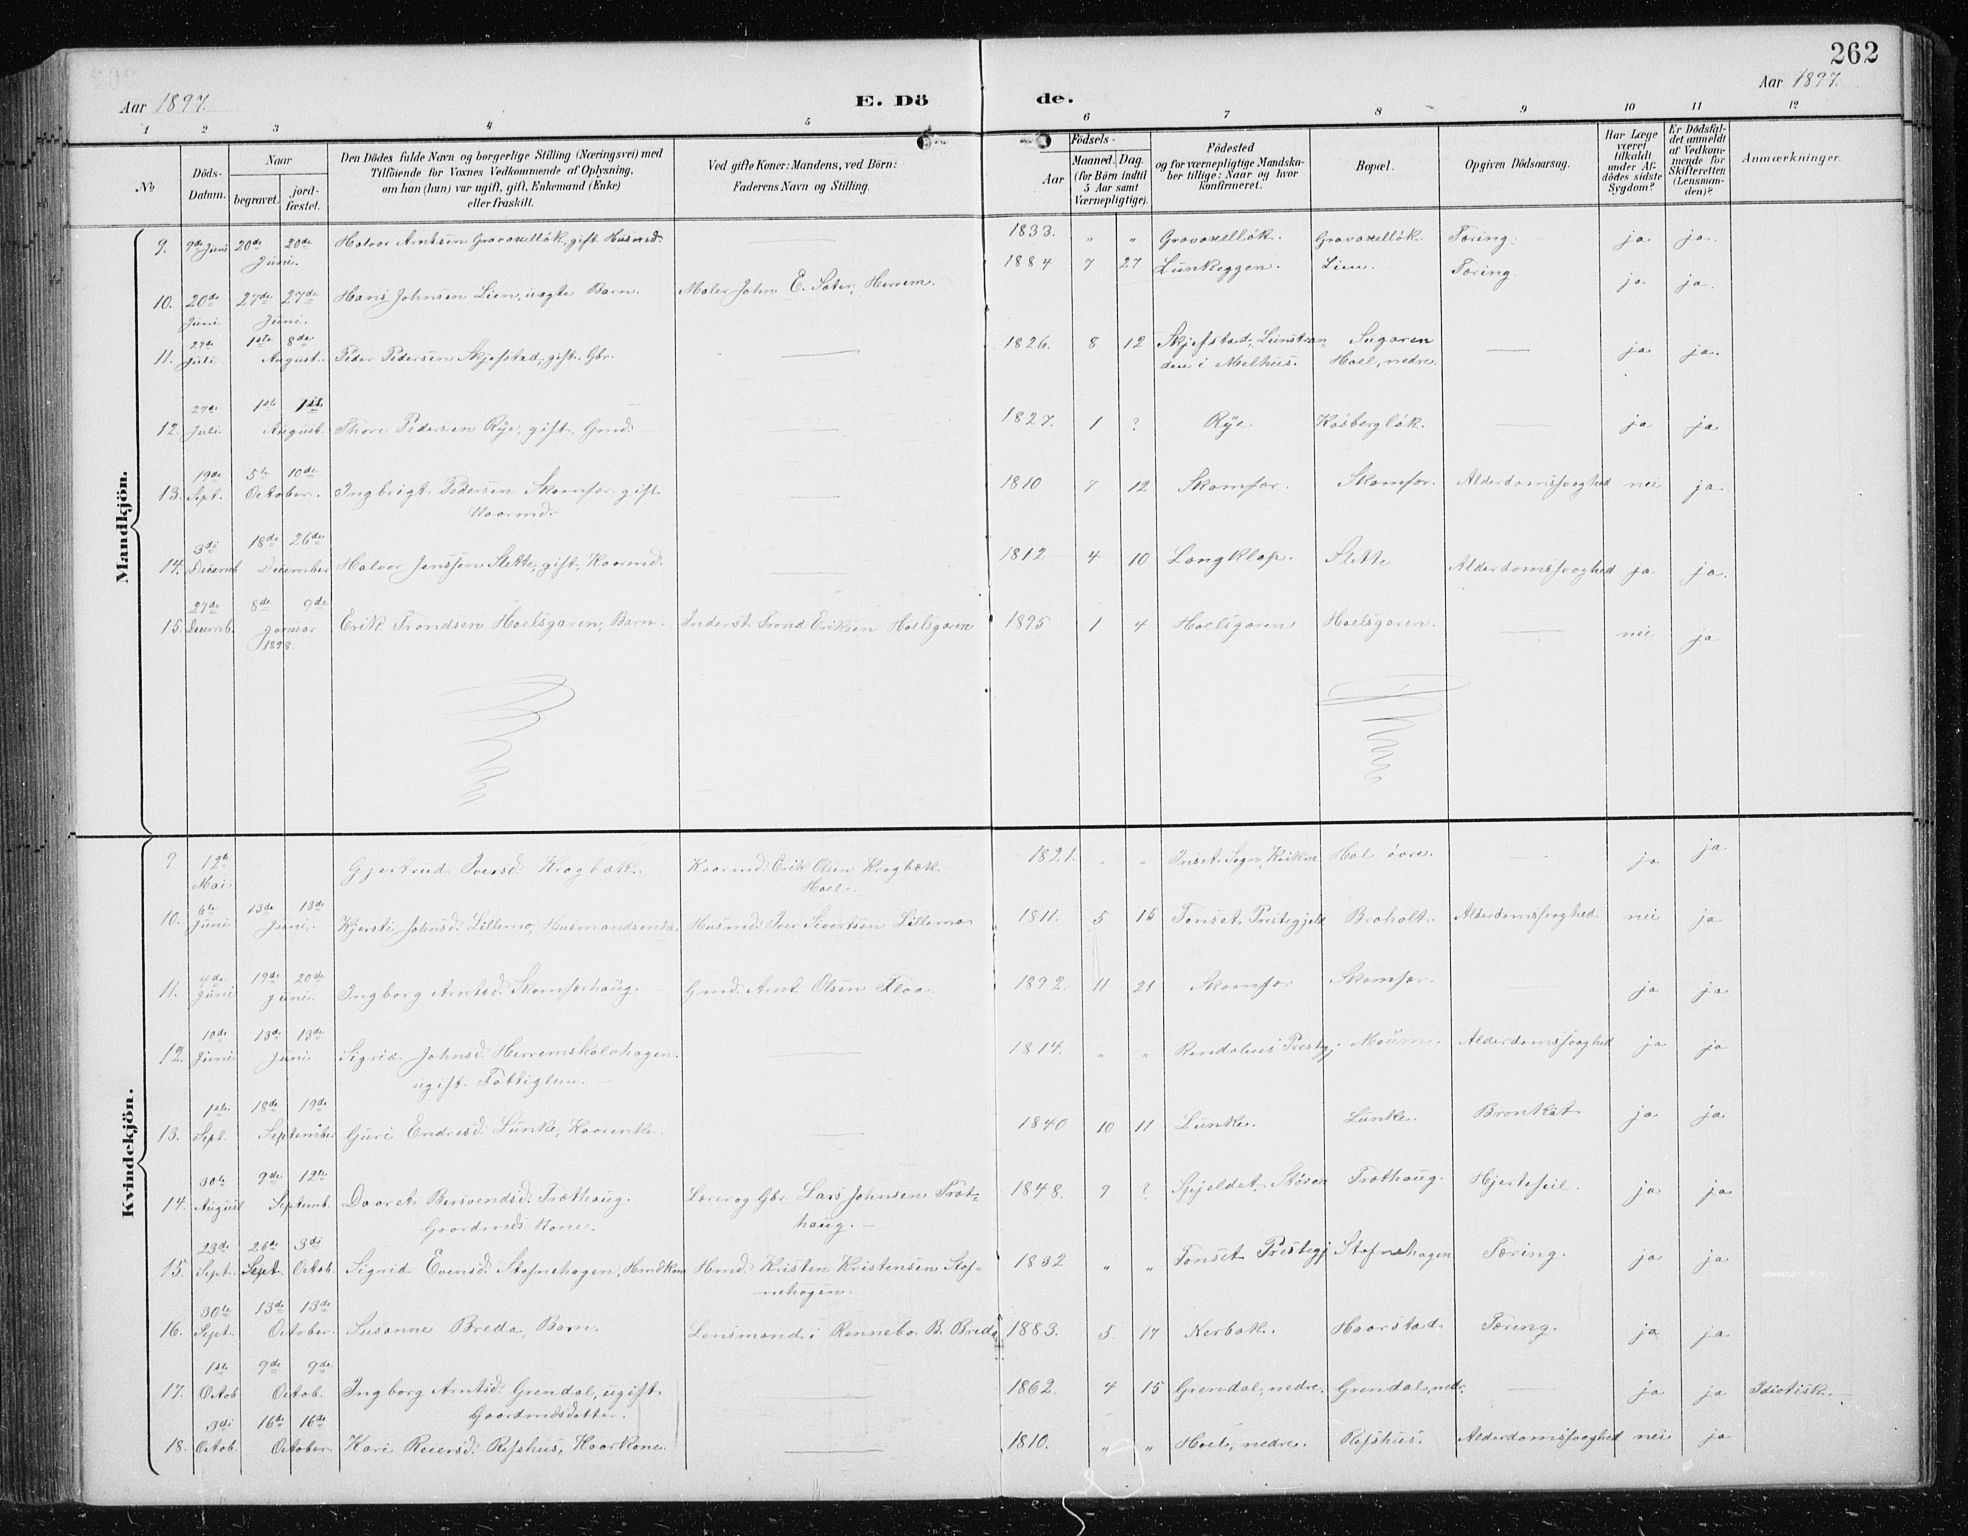 262
Aar 1897. E. Dö de. Aar 1897.
1 2 3 4 5 6 7 8 9 10 11 12
No
Döds-Datum.
Naar
begravet.
jord-fæstet.
Den Dödes fulde Navn og borgerlige Stilling (Næringsvei) med
Tilföiende for Voxnes Vedkommende af Oplysning,
om han (hun) var ugift, gift, Enkemand (Enke)
eller fraskilt.
Ved gifte Koner: Mandens, ved Börn:
Faderens Navn og Stilling.
Födsels-
Aar
Maaned. Dag.
(for Börn indtil
5 Aar samt
Værnepligtige).
Födested
og for værnepligtige Mandska-
ber tillige: Naar og hvor
konfirmeret.
Bopæl.
Opgiven Dödsaarsag.
Har Læge
været
tilkaldt
under Af-
dödes sidste
Sygdom?
Er Dödsfal-
det anmeldt
af Vedkom-
mende for
Skifteretten
(Lensman-
den)?
Anmærkninger.
Mandkjön.
9. 9de Juni 20de 20de Juni. Halvor Arntsen Gravaxelløk, gift Husmd. — 1833. " " Gravaxelløk. Gravaxelløk. Tæring. ja ja.
10. 20de Juni 27de 27de Juni. Hans Johnsen Lien, uægte Barn. Maler John E. Sæter, Herrem. 1884 7 27 Lunkeggen. Lien. Tæring. ja ja.
11. 27de Juli 1ste 8de August. Peder Pedersen Skjefstad, gift, Gbr. — 1826. 8 12 Skjefstad, Lunstran-
den i Melhus. Sugaren
Hoel, nedre. — ja ja.
12. 27de Juli 1ste 1ste August. Thore Pedersen Rye, gift, Gmd. — 1827. 1 ? Rye Kosbergløk. — ja ja
13. 19de Sept. 5te 10de October. Ingbrigt Pedersen Skamfær, gift
Kaarmd. — 1810 7 12 Skamfær. Skamfær. Alderdomssvaghed nei ja.
14. 3di Decemb 18de 26de December Halvor Jenssen Slette, gift, Kaarmd. — 1812 4 10 Langklop. Slette Alderdomssvaghed ja ja.
15. 27de Decemb. 8de 9de Januar 1898. Erik Trondsen Hoelsgaren, Barn. Inderst Trond Eriksen Hoelsgaren 1895 1 4 Hoelsgaren Hoelsgaren. — nei ja
Kvindekjön.
9 12te Mai Gjertrud Iversd. Krogbæk. Kaarmd. Erik Olsen Krogbæk
Hoel. 1821. " " Inset Sogn, Kvikne Hol øvre. — ja ja
10. 6te Juni 13de 13de Juni. Kjersti Johnsd. Lillemo, Husmandsenke Husmd. Iver Sivertsen Lillemo 1811. 5 15 Tønset Prestegjeld Braholt. Alderdomssvaghed nei ja
11. 4de Juni 19de 20de Juni. Ingborg Arntsd. Skamfærhaug. Gmd. Arnt Olsen Floa. 1892. 11 21 Skamfær Skamfær. — ja ja
12. 10de Juni 13de 13de Juni Sigrid Johnsd. Herremskalvhagen.
ugift Fattiglem. — 1814. " " Rendalens Prestgj. Moum. Alderdomssvaghed ja ja
13. 1ste Sept. 18de 19de September Guri Endresd. Lunke, Kaarenke. — 1840 10 11 Lunke. Lunke. Bronkit ja ja
14. 30te August 9de 12te Septemb. Daaret Bersvendsd. Træthaug.
Gaardmds Kone. Lærer og Gbr. Lars Johnsen Træt-
haug. 1848. 9 ? Spjeldet, Støren Træthaug. Hjertefeil. ja ja
15. 23de Sept. 26de Sept. 3di Octob. Sigrid Evensd. Stafnehagen, Hmdkone Hmd. Kristen Kristensen Staf-
nehagen. 1832 " " Tønset Prestegj Stafnehagen Tæring. ja ja
16. 30te Sept. 13de 13de October. Susanne Breda, Barn. Lensmand i Rennebo B. Breda 1883. 5. 17 Nerbæk. Haarstad Tæring. ja ja
17. 1ste Octob. 9de 9de Octob. Ingborg Arntsd. Grendal, ugift
Gaardmdsdatter. — 1862. 4 15 Grendal, nedre. Grendal, nedr. — ja ja Idiotisk.
18. 3di Octob. 16de 16de October. Kari Reiersd. Refshus, Kaarkone. — 1810. " " Hoel, nedre. Refshus. Alderdomssvaghed nei ja